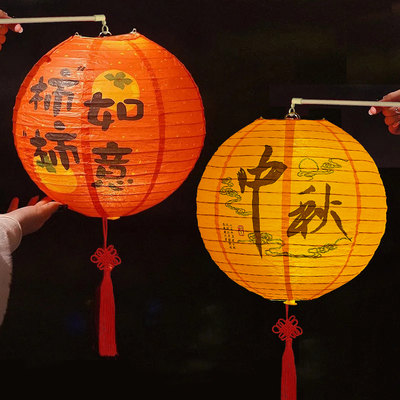 柿柿
如意
中秋